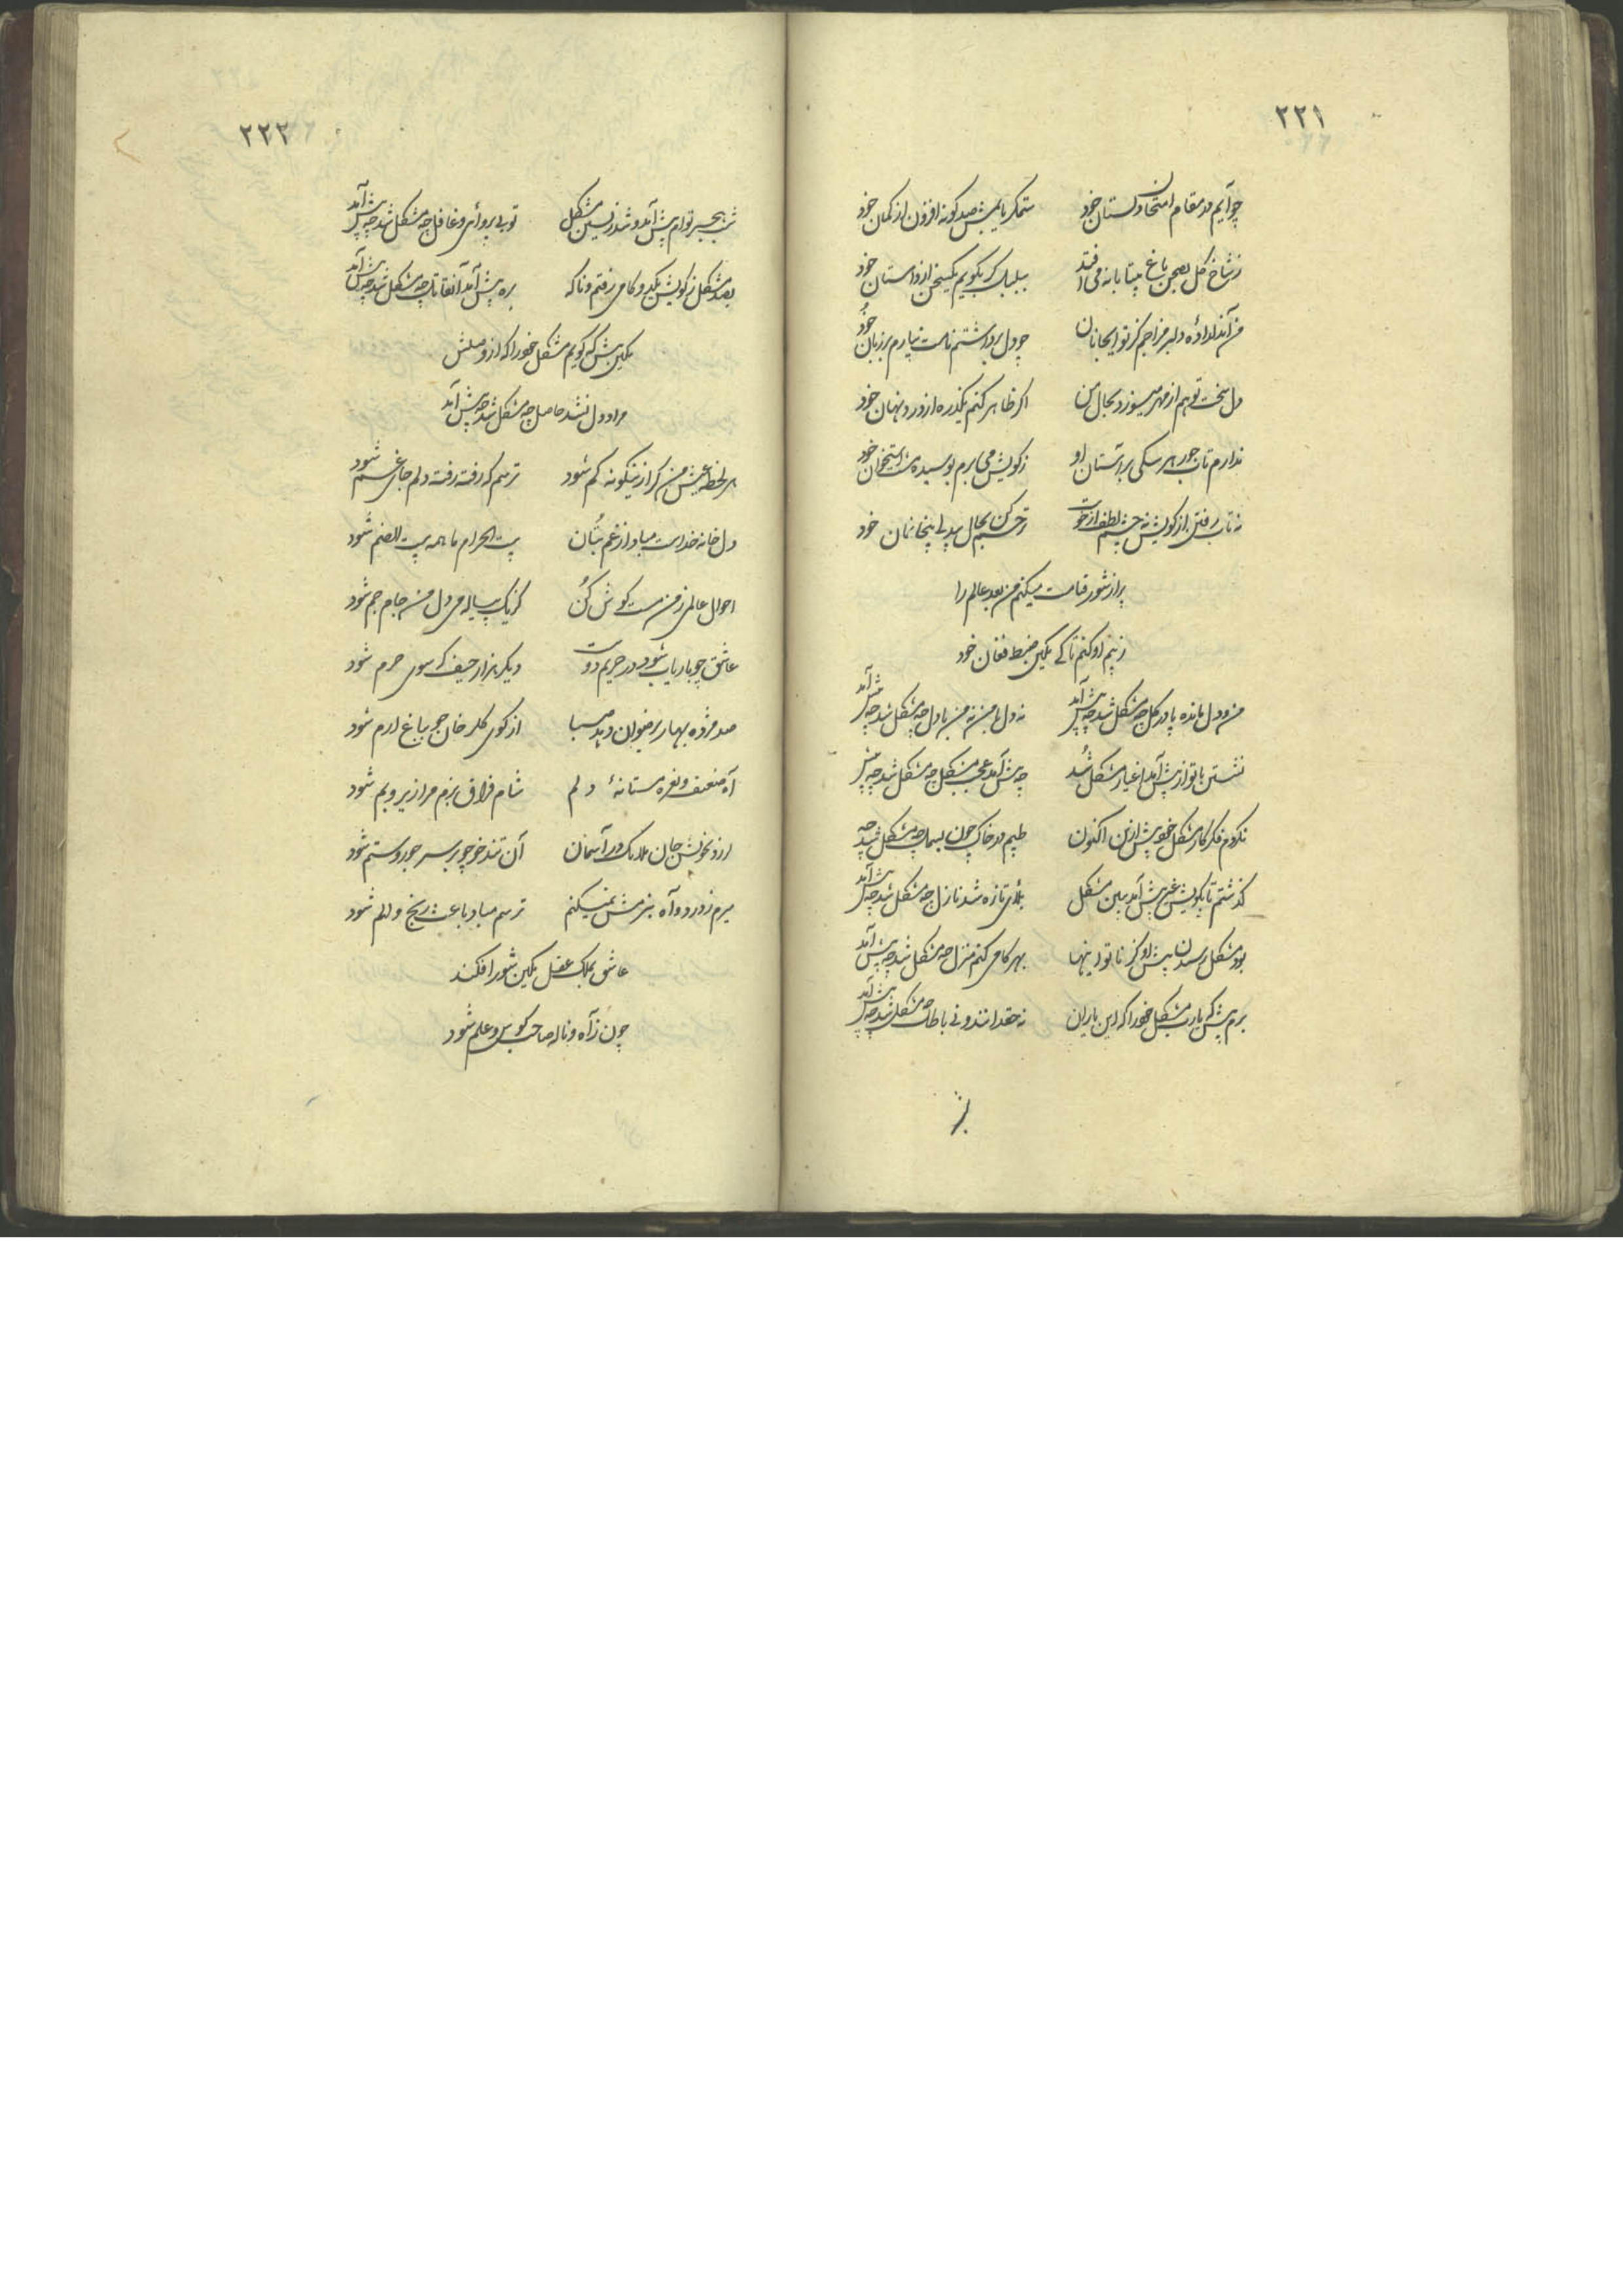 ۲۲۱
چو آیم در مقام امتحان دلستان خود
ستمگر یابمش صد گونه افزون از گمان خود
ز شاخ گل بصحن باغ بیتابانه می افتد
ببلبل گر بگویم یکسخن از داستان خود
من آن دلداده دلبر مزاجم کز تو ایجانان
چو دل برداشتم نامت نیارم بر زبان خود
دل سخت تو هم از مهر میسوزد بحال من
اگر ظاهر کنم یکذره از درد نهان خود
ندارم تاب جور هر سگی بر آستان او
ز کویش می برم بوسیده مشت استخوان خود
نه تاب رفتن از کویش نه چشم لطف از خویت
ترحم کن بحال بیدل بیخانمان خود
پر از شور قیامت میکنم من بعد عالم را
ز بیم او کنم تا کی مکین ضبط فغان خود
من و دل مانده پا در گل چه مشکل شد چه پیش آمد
نه دل با من نه من با دل چه مشکل شد چه پیش آمد
نشستن با تو از پیش آمد اغیار مشکل شد
چه پیش آمد عجب مشکل چه مشکل شد چه پیش
نکردم فکر کار مشکل خویش ازین اکنون
طپم در خاک چون بسمل چه مشکل شد چه
گذشتم تا بکویش غیر پیش آمد ببین مشکل
بلای تازه شد نازل چه مشکل شد چه پیش آمد
بود مشکل رسیدن پیش او کز ناتوانیها
بهر گامی کنم منزل چه مشکل شد چه پیش آمد
برم پیش که یارب مشکل خود را که این یاران
نه حقدانند و نی باطل چه مشکل شد چه پیش آمد
۲۲۳
شب هجر توام پیش آمد و شد زیستن مشکل
تو بی پروای و غافل چه مشکل شد چه پیش آمد
بصد مشکل ز کویش یکدو گامی رفتم و ناگه
بره پیش آمد آنقاتل چه مشکل شد چه پیش آمد
مکین پیش که گویم مشکل خود را که از وصلش
مراد دل نشد حاصل چه مشکل شد چه پیش آمد
هر لحظه عیش من گر ازینگونه کم شود
ترسم که رفته رفته دلم جای غم شود
دل خانه خداست مبادا ز غم بتان
بیت الحرام ما همه بیت الصنم شود
احوال عالمی ز من مست گوش کن
کز یک پیاله می دل من جام جم شود
عاشق چو باریاب شود در حریم دوست
دیگر هزار حیف که سوی حرم شود
صد مژده بهار برضوان دهد صبا
از کوی گلرخان چو بباغ ارم شود
آه ضعیف و نعره مستانهٔ دلم
شام فراق بزم مرا زیر و بم شود
لرزد بخویش جان ملایک در آسمان
آن تندخو چو بر سر جور و ستم شود
میرم ز درد و آه ببزمش نمیکنم
ترسم مباد باعث رنج و الم شود
عاشق بملک عقل مکین شور افکند
چون ز آه و ناله صاحب کوس و علم شود